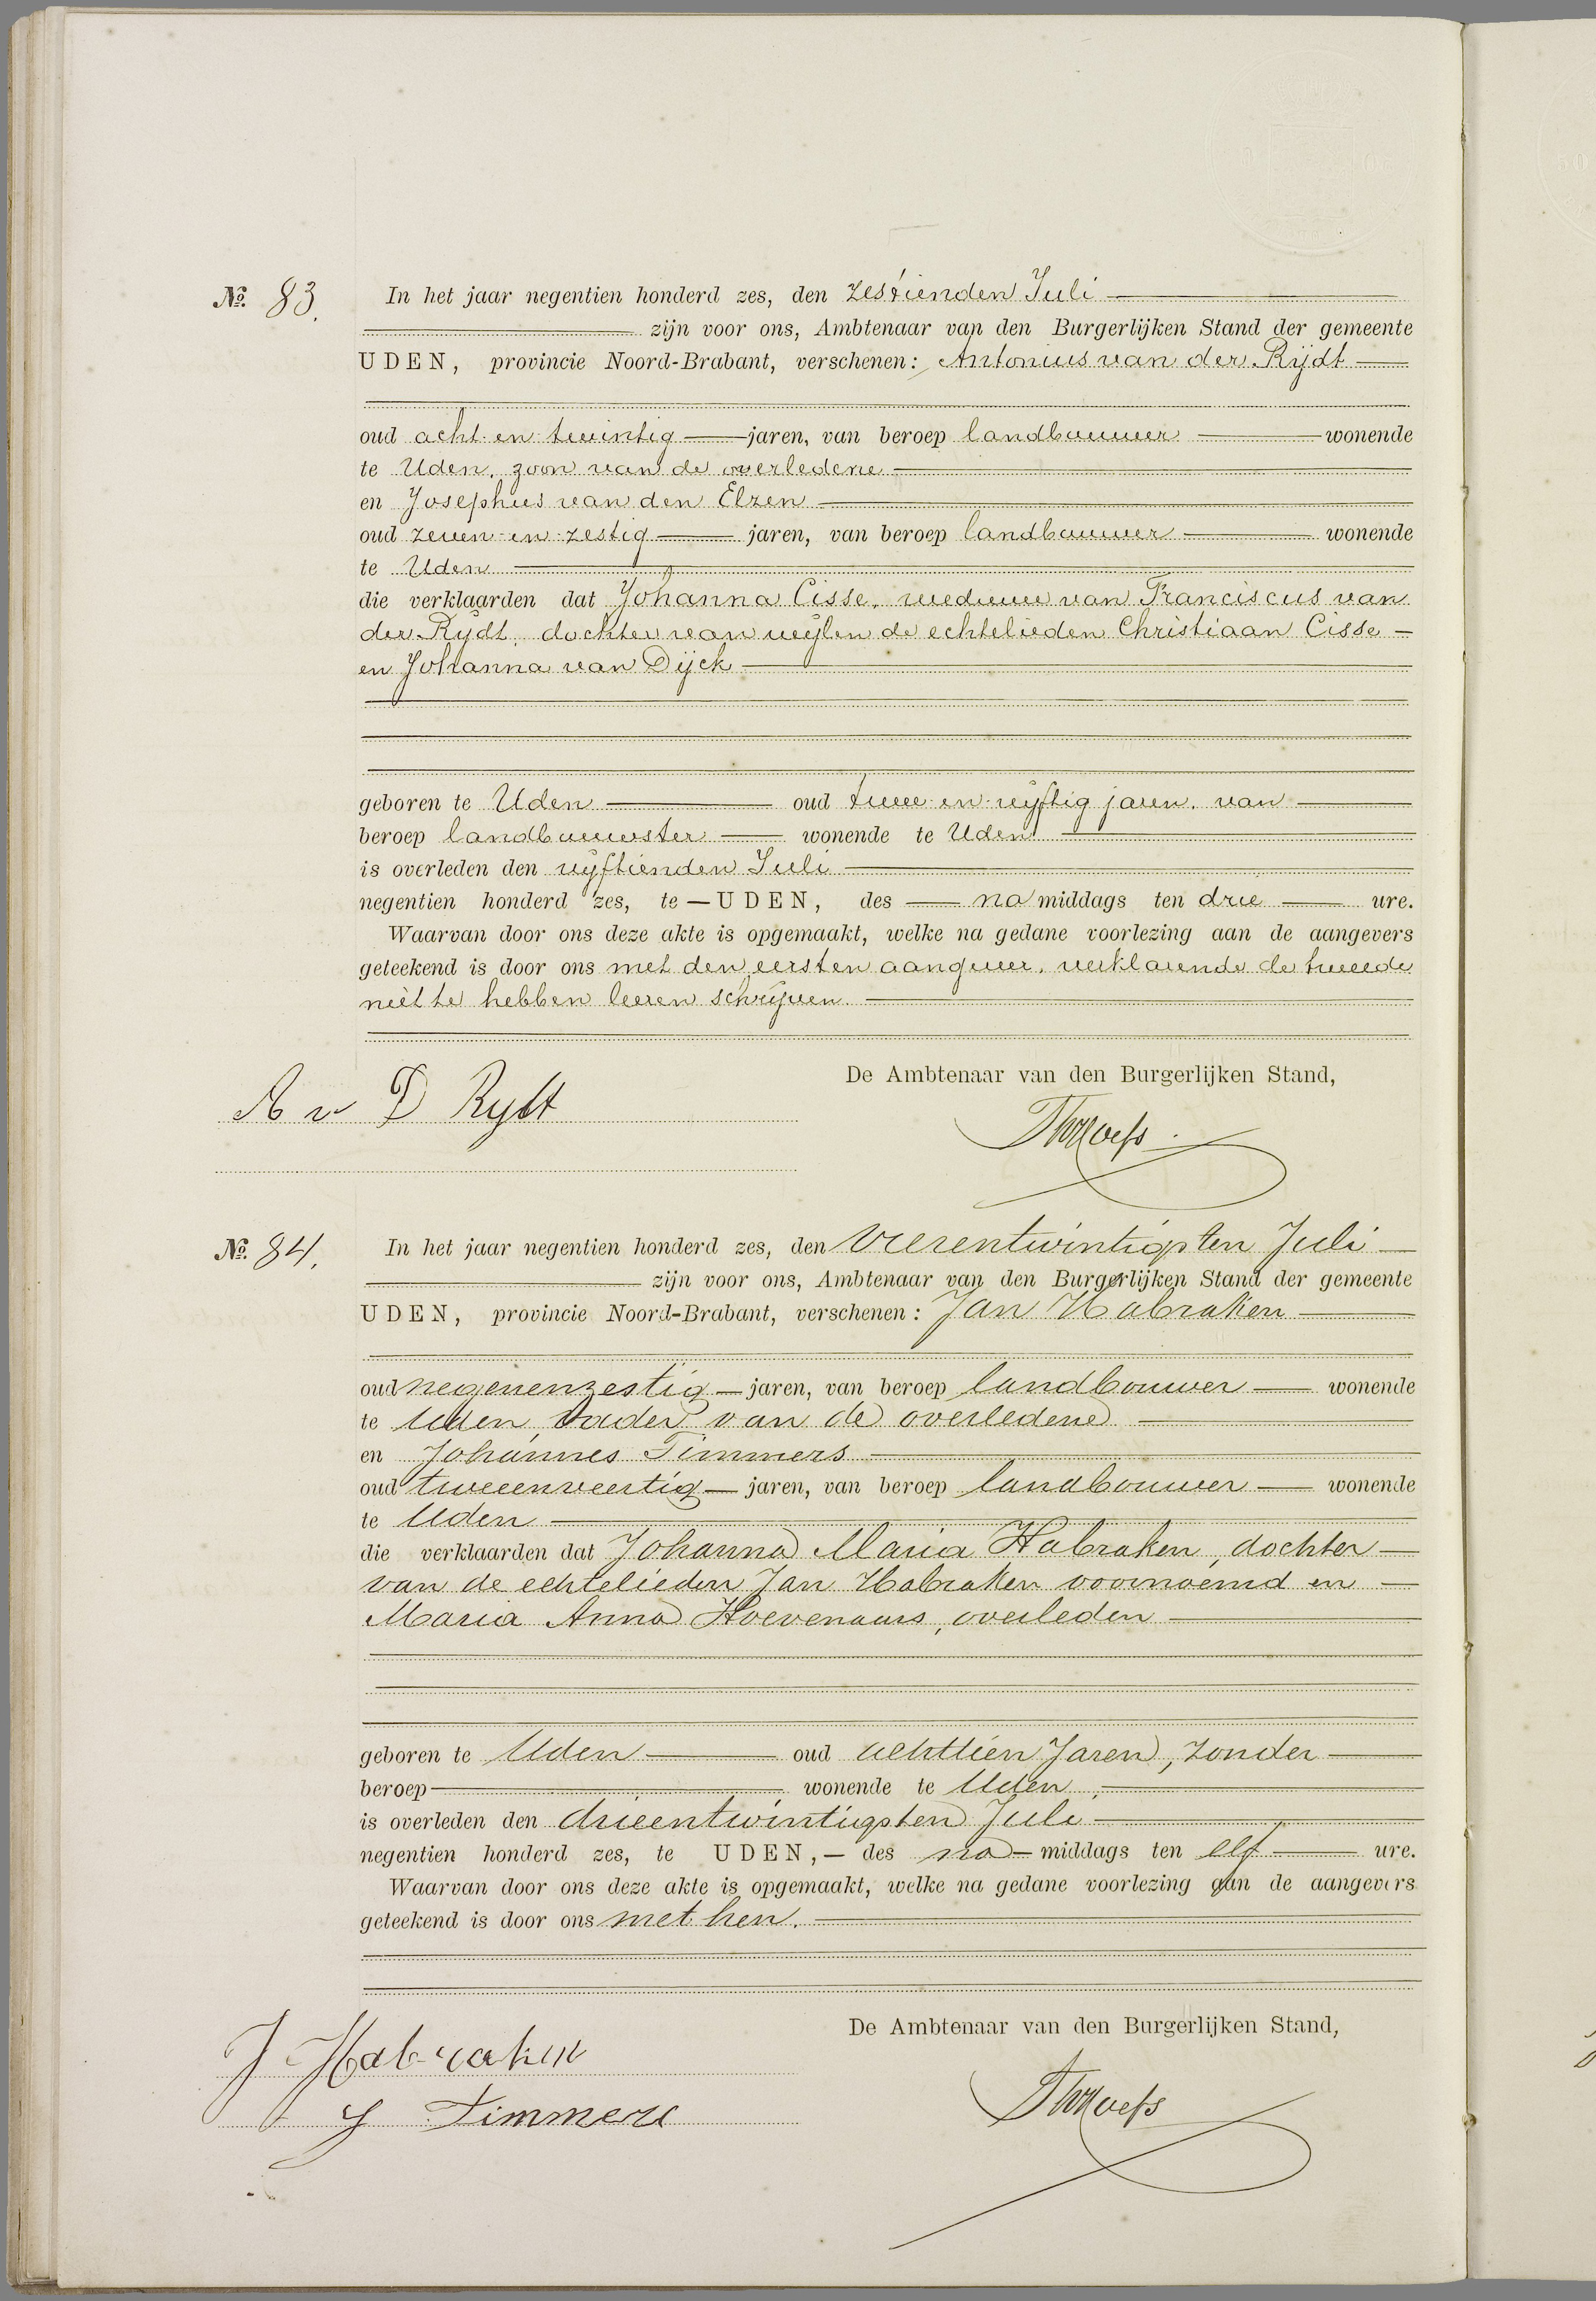 No. 83.
In het jaar negentien honderd zes, den zestienden Juli
zijn voor ons, Ambtenaar van den Burgerlijken Stand der gemeente
UDEN, provincie Noord-Brabant, verschenen: Antonius van der Rijdt
oud acht-en-twintig jaren, van beroep landbouwer wonende
te Uden, zoon van de overledene
en Josephus van den Elzen
oud zeven-en-zestig jaren, van beroep landbouwer wonende
te Uden
die verklaarden dat Johanna Cisse, weduwe van Franciscus van
der Rijdt, dochter van wijlen de echtelieden Christiaan Cisse
en Johanna van Dijck
geboren te Uden oud twee-en-vijftig jaren, van
beroep landbouwster wonende te Uden
is overleden den vijftienden Juli
negentien honderd zes, te UDEN, des na middags ten drie ure.
Waarvan door ons deze akte is opgemaakt, welke na gedane voorlezing aan de aangevers
geteekend is door ons met den eersten aangever, verklarende de tweede
niet te hebben leeren schrijven.
De Ambtenaar van den Burgerlijken Stand,
A v D Rydt
No. 84.
In het jaar negentien honderd zes, den vierentwintigsten Juli
zijn voor ons, Ambtenaar van den Burgerlijken Stand der gemeente
UDEN, provincie Noord-Brabant, verschenen: Jan Habraken
oud negenenzestig jaren, van beroep landbouwer wonende
te Uden, vader van de overledene
en Johannes Timmers
oud tweeenveertig jaren, van beroep landbouwer wonende
te Uden
die verklaarden dat Johanna Maria Habraken, dochter
van de echtelieden Jan Habraken voornoemd en
Maria Anna Hoevenaars, overleden
geboren te Uden oud achttien Jaren, zonder
beroep wonende te Uden,
is overleden den drieentwintigsten Juli
negentien honderd zes, te UDEN, des na middags ten elf ure.
Waarvan door ons deze akte is opgemaakt, welke na gedane voorlezing aan de aangevers
geteekend is door ons met hen.
De Ambtenaar van den Burgerlijken Stand,
J Habraken
J Timmers